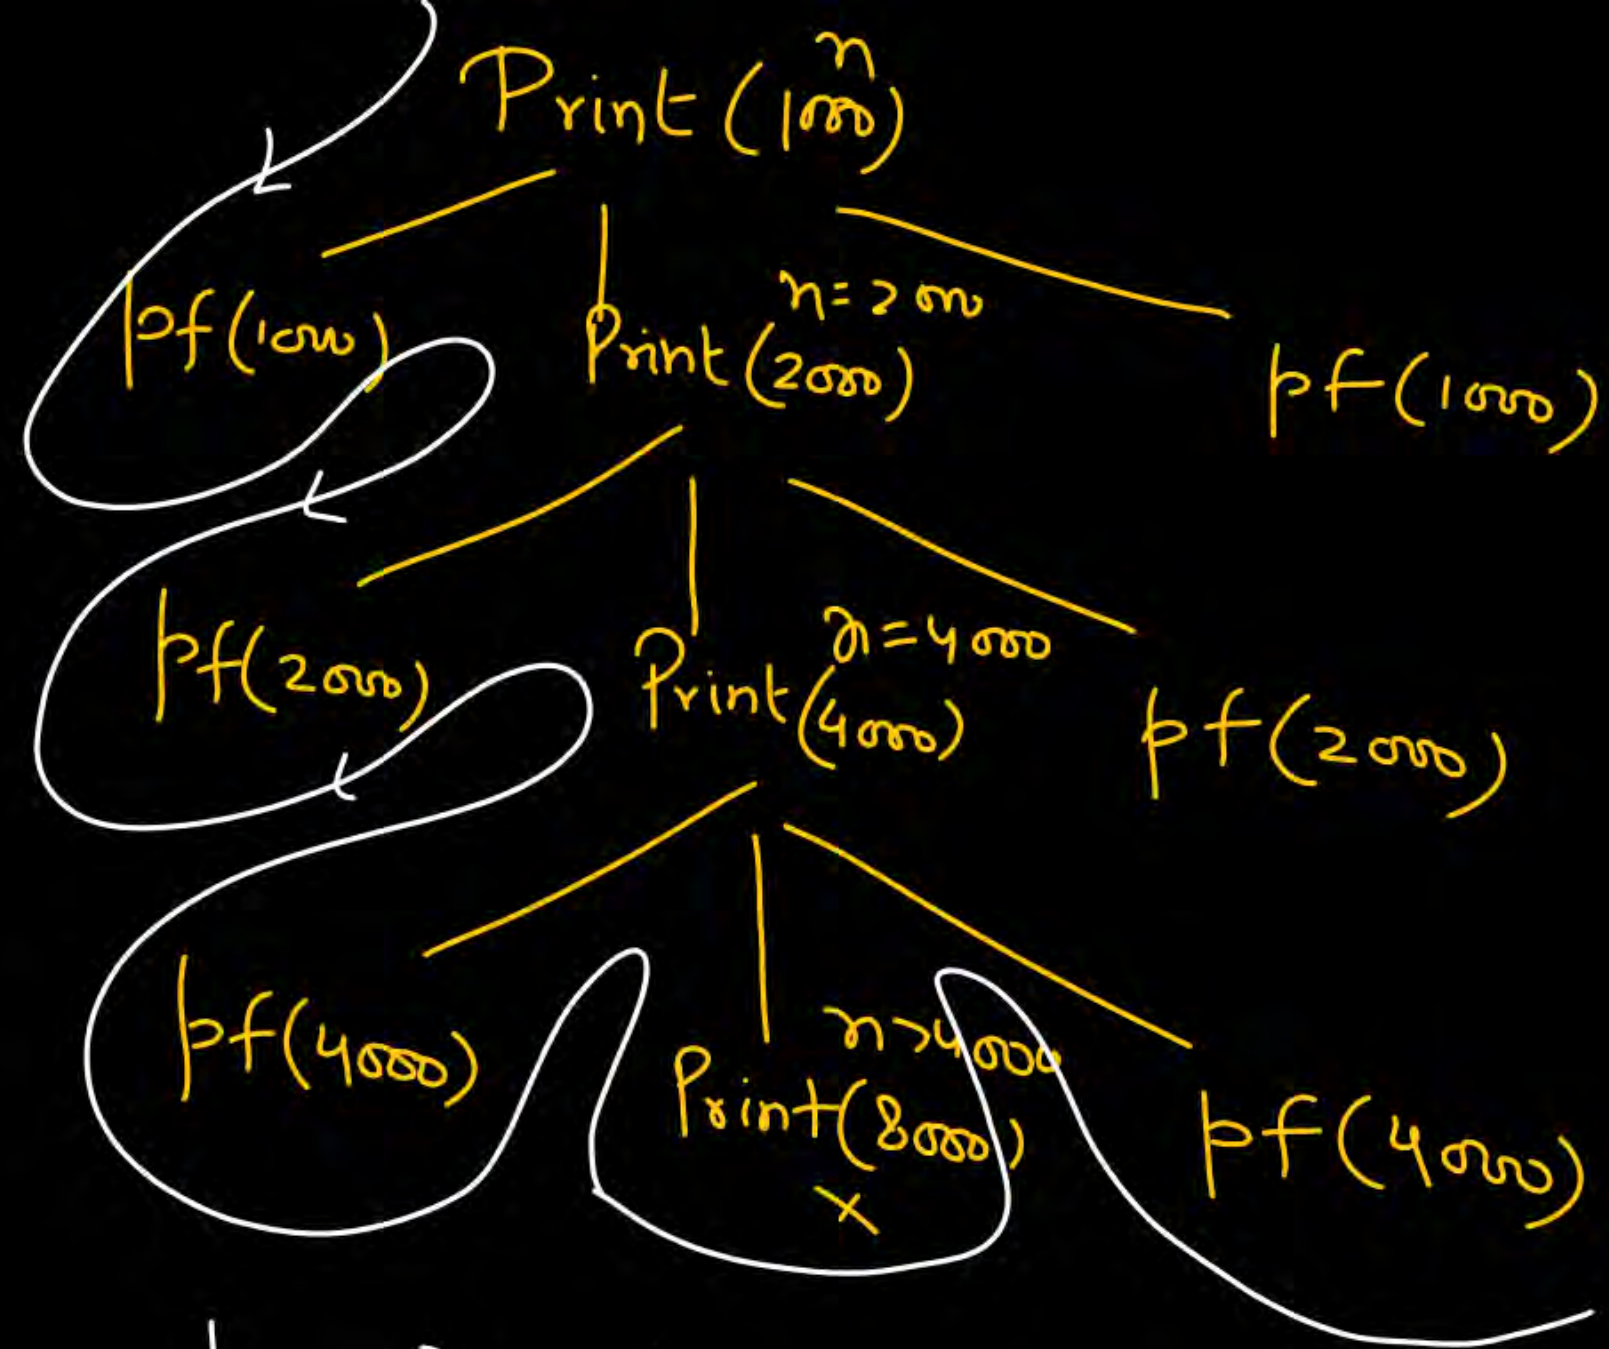 n
Print (1000)
n=2000
pf(1000) Print (2000) pf(1000)
n=4000
pf(2000) Print (4000) pf(2000)
n>4000
pf(4000) Print(8000) pf(4000)
x